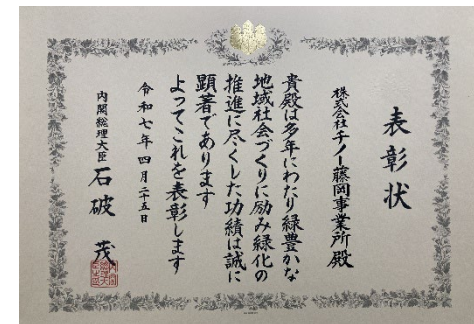 表彰状
株式会社チノー藤岡事業所殿
貴殿は多年にわたり緑豊かな
地域社会づくりに励み緑化の
推進に尽くした功績は誠に
顕著であります
よってこれを表彰します
令和七年四月二十五日
内閣総理大臣 石破 茂